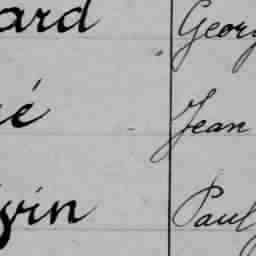 ard Georg
é Jean
in Paul